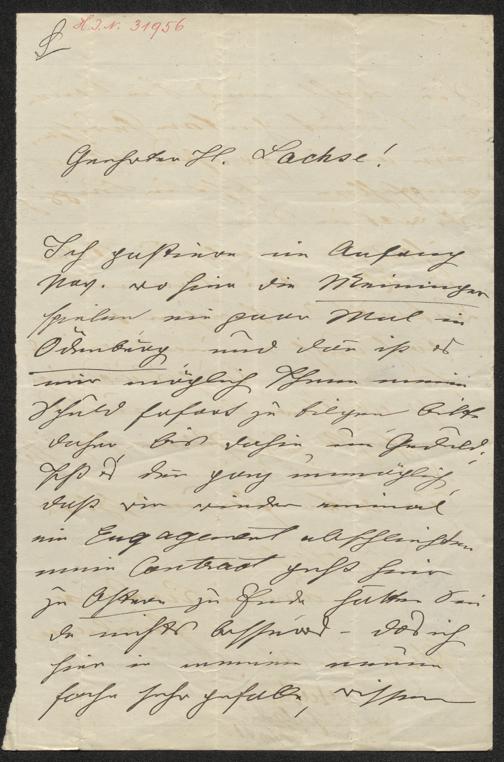 H.I.N. 31956
Geehrter H. Sachse!
Ich gastiere im Anfang
Nov. wo hier die Meininger
spielen ein paar Mal in
Ödenburg und da ist es
mir möglich Ihnen meine
Schuld sofort zu tilgen bitte
daher bis dahin um Geduld.
Ist es den ganz unmöglich,
daß wir wieder einmal
ein Engagement abschließen
mein Contract geht hier
zu Ostern zu Ende hätten Sie
da nichts – daß ich
hier in meinem neuen
Fache sehr gefalle, wissen